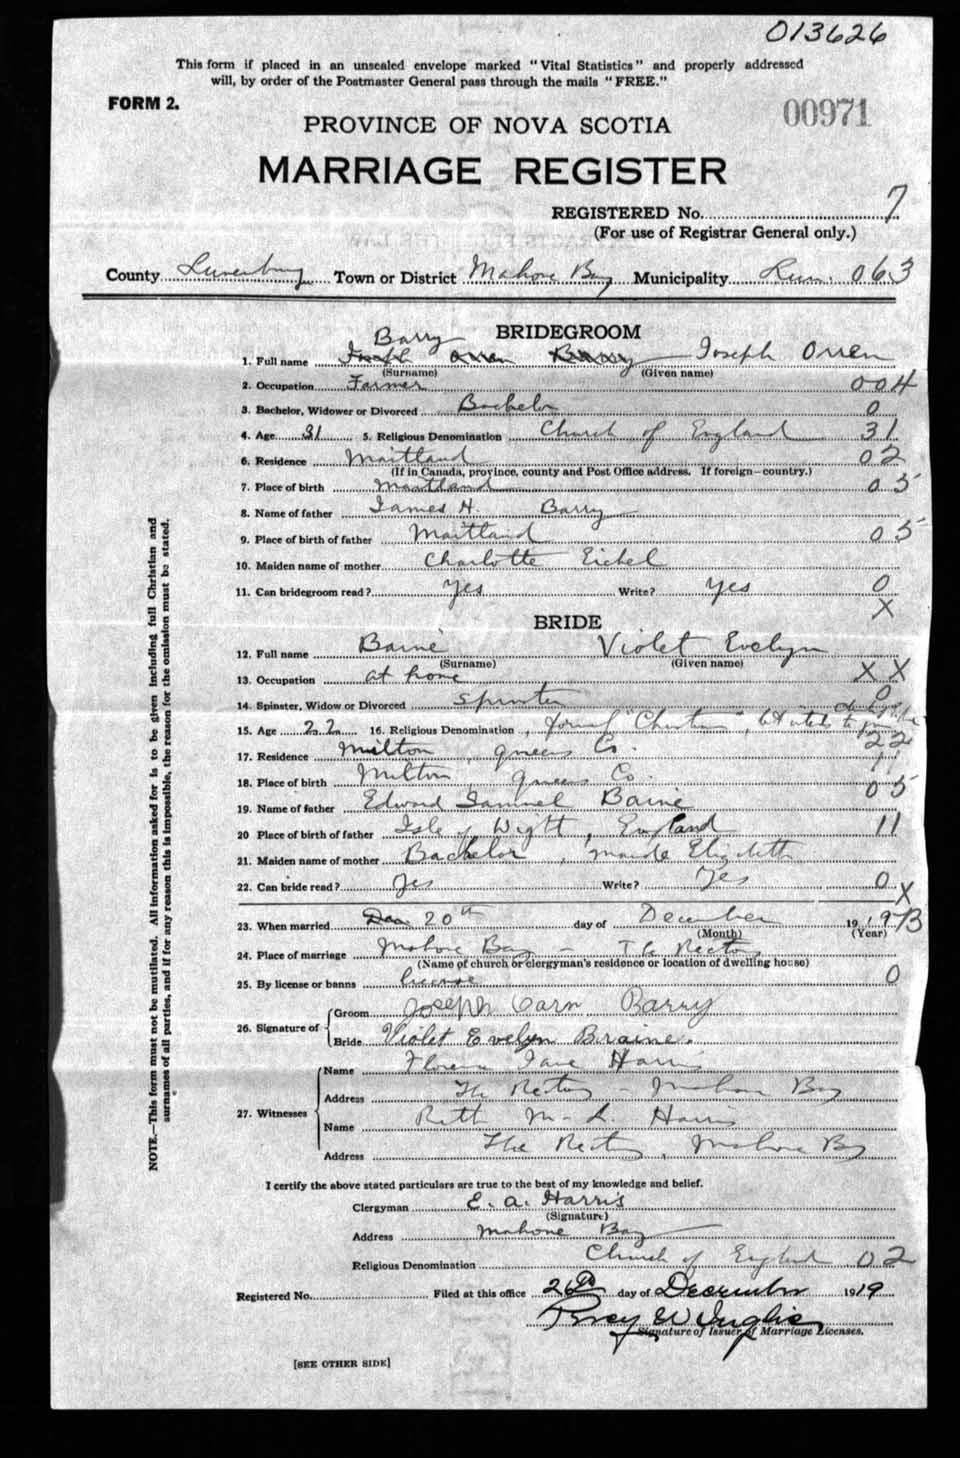 013626
This form if placed in an unsealed envelope marked "Vital Statistics" and properly addressed
will, by order of the Postmaster General pass through the mails "FREE."
FORM 2.
00971
PROVINCE OF NOVA SCOTIA
MARRIAGE REGISTER
REGISTERED No. 7
(For use of Registrar General only.)
County Lunenburg Town or District Mahone Bay Municipality Lun. 063
BRIDEGROOM
Barry
1. Full name Joseph Orren Barry Joseph Orren
(Surname) (Given name)
2. Occupation Farmer 004
3. Bachelor, Widower or Divorced Bachelor 0
4. Age 31 5. Religious Denomination Church of England 31
6. Residence Maitland 02
(If in Canada, province, county and Post Office address. If foreign—country.)
7. Place of birth Maitland 05
8. Name of father James H. Barry
9. Place of birth of father Maitland 05
10. Maiden name of mother Charlotte Eichel
11. Can bridegroom read? Yes Write? Yes 0
X
BRIDE
12. Full name Baine Violet Evelyn
(Surname) (Given name)
13. Occupation at home X X
14. Spinster, Widow or Divorced Spinster 0
15. Age 22 16. Religious Denomination "Christian", 22
17. Residence Milton, Queens Co. 11
18. Place of birth Milton, Queens Co. 05
19. Name of father Edward Samuel Baine
20 Place of birth of father Isle of Wight, England 11
21. Maiden name of mother Bachelor, Maude Elizabeth
22. Can bride read? Yes Write? Yes 0 X
23. When married Dec 20th day of December 1919 B
(Month) (Year)
24. Place of marriage Mahone Bay - The Rectory
(Name of church or clergyman's residence or location of dwelling house)
25. By license or banns license 0
26. Signature of
Groom Joseph Oarn Barry
Bride Violet Evelyn Braine.
27. Witnesses
Name Florence Jane Harris
Address The Rectory - Mahone Bay
Name Ruth M. L. Harris
Address The Rectory, Mahone Bay
I certify the above stated particulars are true to the best of my knowledge and belief.
Clergyman E. A. Harris
(Signature)
Address Mahone Bay
Religious Denomination Church of England 02
Registered No. Filed at this office day of December 1919
Percy W Inglis
Signature of Issuer of Marriage Licenses.
[SEE OTHER SIDE]
NOTE.—This form must not be mutilated. All information asked for is to be given including full Christian and
surnames of all parties, and if for any reason this is impossible, the reason for the omission must be stated.